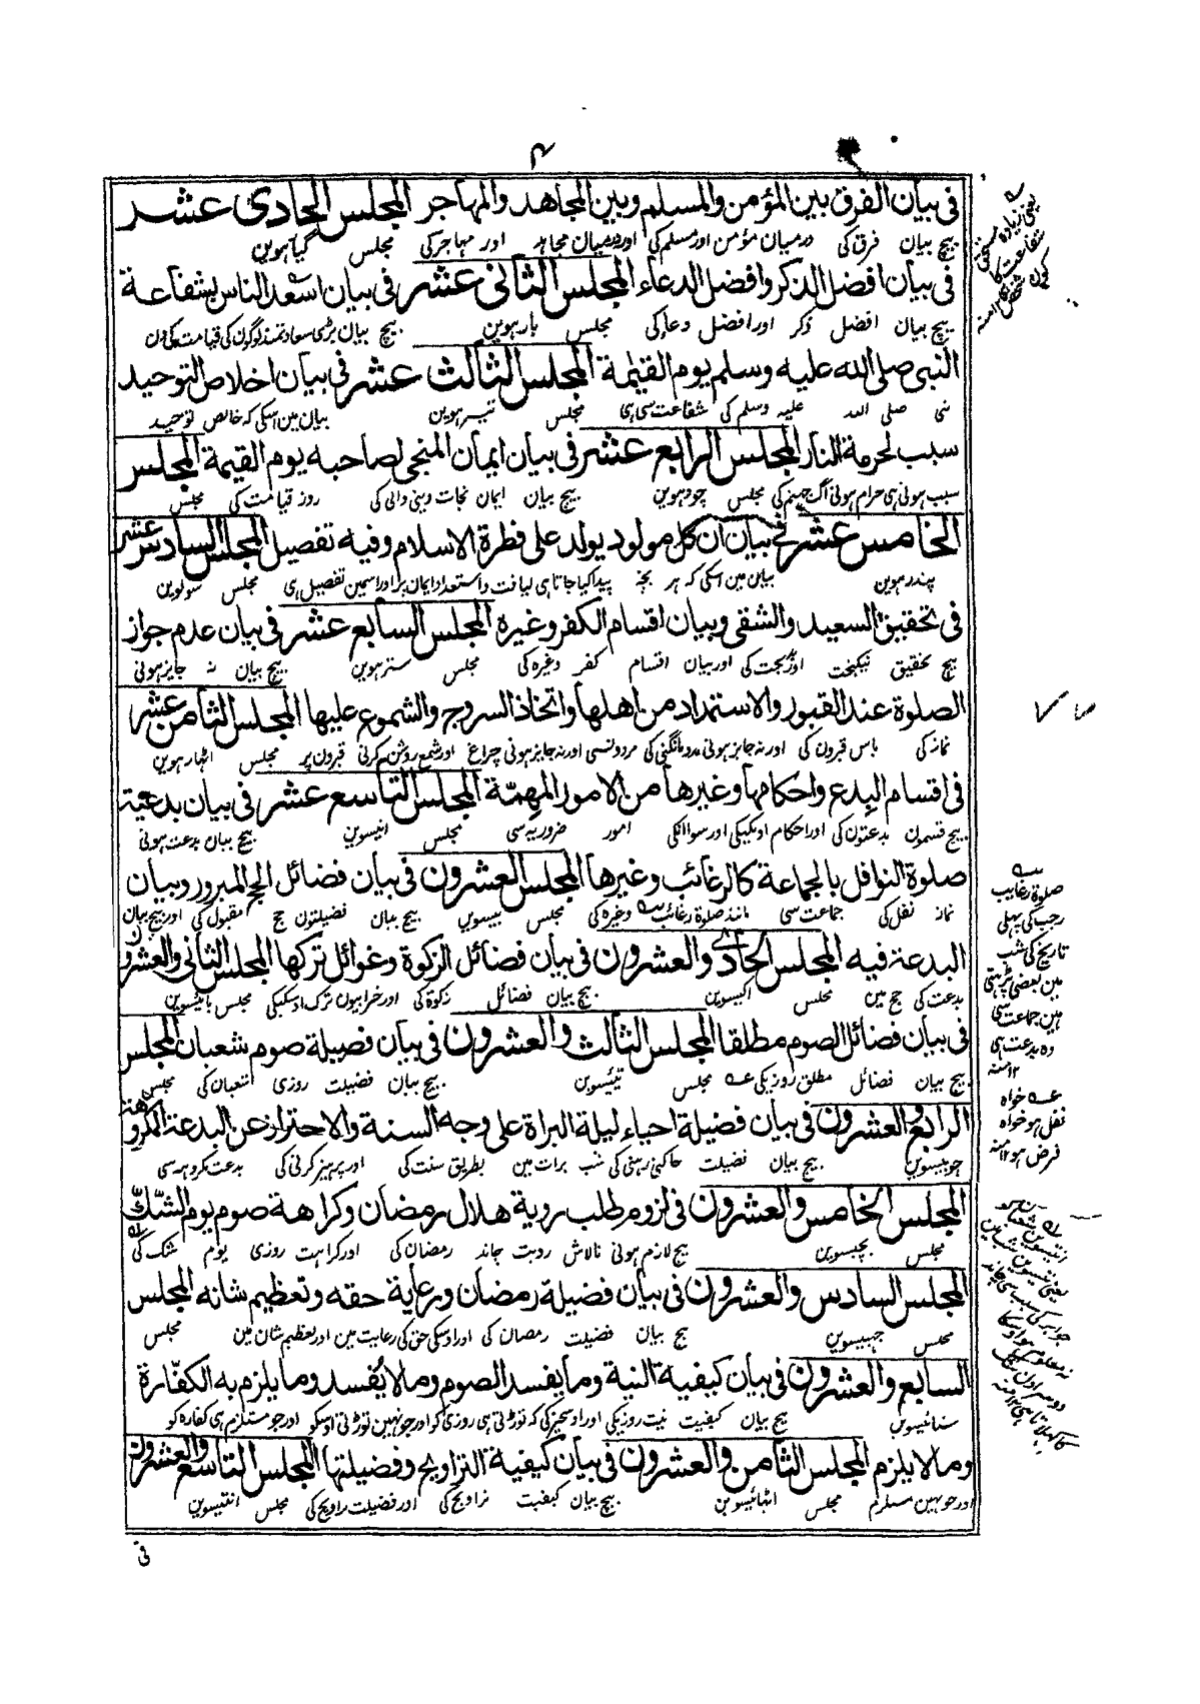 ۴
فى بيان الفرق بين المؤمن والمسلم وبين المجاهد والمهاجر المجلس الحادى عشر
بیچ بیان فرق کی درمیان مؤمن اور مسلم کی اور درمیان مجاہد اور مہاجر کی مجلس گیارہوین
فى بيان افضل الذكر وافضل الدعاء المجلس الثانى عشر فى بيان اسعد الناس بشفاعة
بیچ بیان افضل ذکر اور افضل دعا کی مجلس بارہوین بیچ بیان بڑی سعادتمند لوگون کی قیامت کی دن
النبى صلى الله عليه وسلم يوم القيمة المجلس الثالث عشر فى بيان اخلاص التوحيد
نبی صلی اللہ علیہ وسلم کی شفاعت سی ہی مجلس تیرہوین بیان مین اسکی کہ خالص توحید
سبب لحرمة النار المجلس الرابع عشر فى بيان ايمان المنجى لصاحبه يوم القيمة المجلس
سبب ہوتی ہی حرام ہونی آگ جہنم کی مجلس چودہوین بیچ بیان ایمان نجات دینی والی کی روز قیامت کی مجلس
الخامس عشر فى بيان ان كل مولود يولد على فطرة الاسلام وفيه تفصيل المجلس السادس عشر
پندرہوین بیان مین اسکی کہ ہر بچہ پیدا کیا جاتا ہی لیاقت و استعداد ایمان پر اور اسمین تفصیل ہی مجلس سولہوین
فى تحقيق السعيد والشقى وبيان اقسام الكفر وغيره المجلس السابع عشر فى بيان عدم جواز
بیچ تحقیق نیکبخت اور بدبخت کی اور بیان اقسام کفر وغیرہ کی مجلس سترہوین بیچ بیان نہ جایز ہونی
الصلوة عند القبور والاستمداد من اهلها واتخاذ السروج والشموع عليها المجلس الثامن عشر
نماز کی پاس قبرون کی اور نہ جایز ہونی مدد مانگنی کی مردونسی اور نہ جایز ہونی چراغ اور شمع روشن کرنی قبرون پر مجلس اٹہارہوین
فى اقسام البدع واحكامها وغيرها من الامور المهمّة المجلس التاسع عشر فى بيان بدعية
بیچ قسمون بدعتون کی اور احکام اونکی کی اور سوا انکی امور ضروریہ سی مجلس انیسوین بیچ بیان بدعت ہونی
صلوة النوافل بالجماعة كالرغائب وغيرها المجلس العشرون فى بيان فضائل الحج المبرور وبيان
نماز نفل کی جماعت سی مانند صلوۃ رغائب وغیرہ کی مجلس بیسوین بیچ بیان فضیلتون حج مقبول کی اور بیچ بیان
البدعة فيه المجلس الحادى والعشرون فى بيان فضائل الزكوة وغوائل تركها المجلس الثانى والعشرون
بدعت کی حج مین مجلس اکیسوین بیچ بیان فضائل زکوۃ کی اور خرابیون ترک اوسکی کی مجلس بائیسوین
فى بيان فضائل الصوم مطلقا المجلس الثالث والعشرون فى بيان فضيلة صوم شعبان المجلس
بیچ بیان فضائل مطلق روزیکی مجلس تیئسوین بیچ بیان فضیلت روزی شعبان کی مجلس
الرابع والعشرون فى بيان فضيلة احياء ليلة البراة على وجه السنة والاحتراز عن البدعة المكروهة
چوبیسوین بیچ بیان فضیلت جاگنی رہنی کی شب برات مین بطریق سنت کی اور پرہیز کرنی کی بدعت مکروہہ سی
المجلس الخامس والعشرون فى لزوم طلب روية هلال رمضان وكراهة صوم يوم الشك
مجلس پچیسوین بیچ لازم ہونی تلاش رویت چاند رمضان کی اور کراہت روزی یوم شک کی
المجلس السادس والعشرون فى بيان فضيلة رمضان ورعاية حقه وتعظيم شانه المجلس
مجلس چہبیسوین بیچ بیان فضیلت رمضان کی اور اوسکی حق کی رعایت مین اور تعظیم شان مین مجلس
السابع والعشرون فى بيان كيفية النية وما يفسد الصوم وما لا يُفسد وما يلزم به الكفّارة
ستائیسوین بیچ بیان کیفیت نیت روزیکی اور اوسچیز کی کہ توڑتی ہی روزی کو اور جو نہین توڑتی اوسکو اور جو مستلزم ہی کفارہ کو
وما لا يلزم المجلس الثامن والعشرون فى بيان كيفية التراويح وفضيلتها المجلس التاسع والعشرون
اور جو نہین مستلزم مجلس اٹہائیسوین بیچ بیان کیفیت تراویح کی اور فضیلت تراویح کی مجلس انتیسوین
فى
یعنی زیادہ مستحق
شفاعت کا
کون شخص
صلوۃ رغایب
رجب کی پہلی
تاریخ کی شب
مین بعضی پڑہتی
ہین جماعت سی
وہ بدعت ہی
۱۲ منہ
خواہ
نفل ہو خواہ
فرض ہو ۱۲ منہ